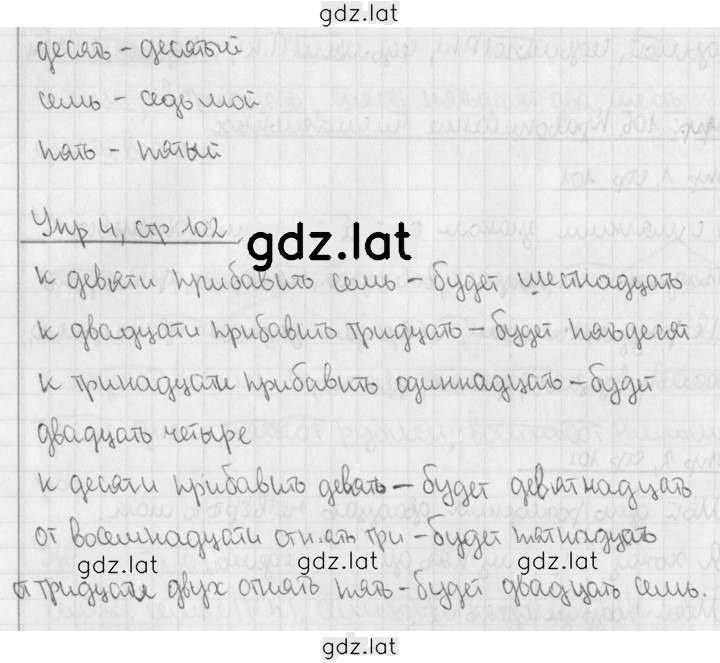 gdz.lat
десять – десятый
семь – седьмой
пять – пятый
Упр 4, стр 102
gdz.lat
к девяти прибавить семь – будет шестнадцать
к двадцати прибавить тридцать – будет пятьдесят
к тринадцати прибавить одиннадцать – будет
двадцать четыре
к десяти прибавить девять – будет девятнадцать
от восемнадцати отнять три – будет пятнадцать
gdz.lat gdz.lat gdz.lat
от тридцати двух отнять пять – будет двадцать семь.
gdz.lat